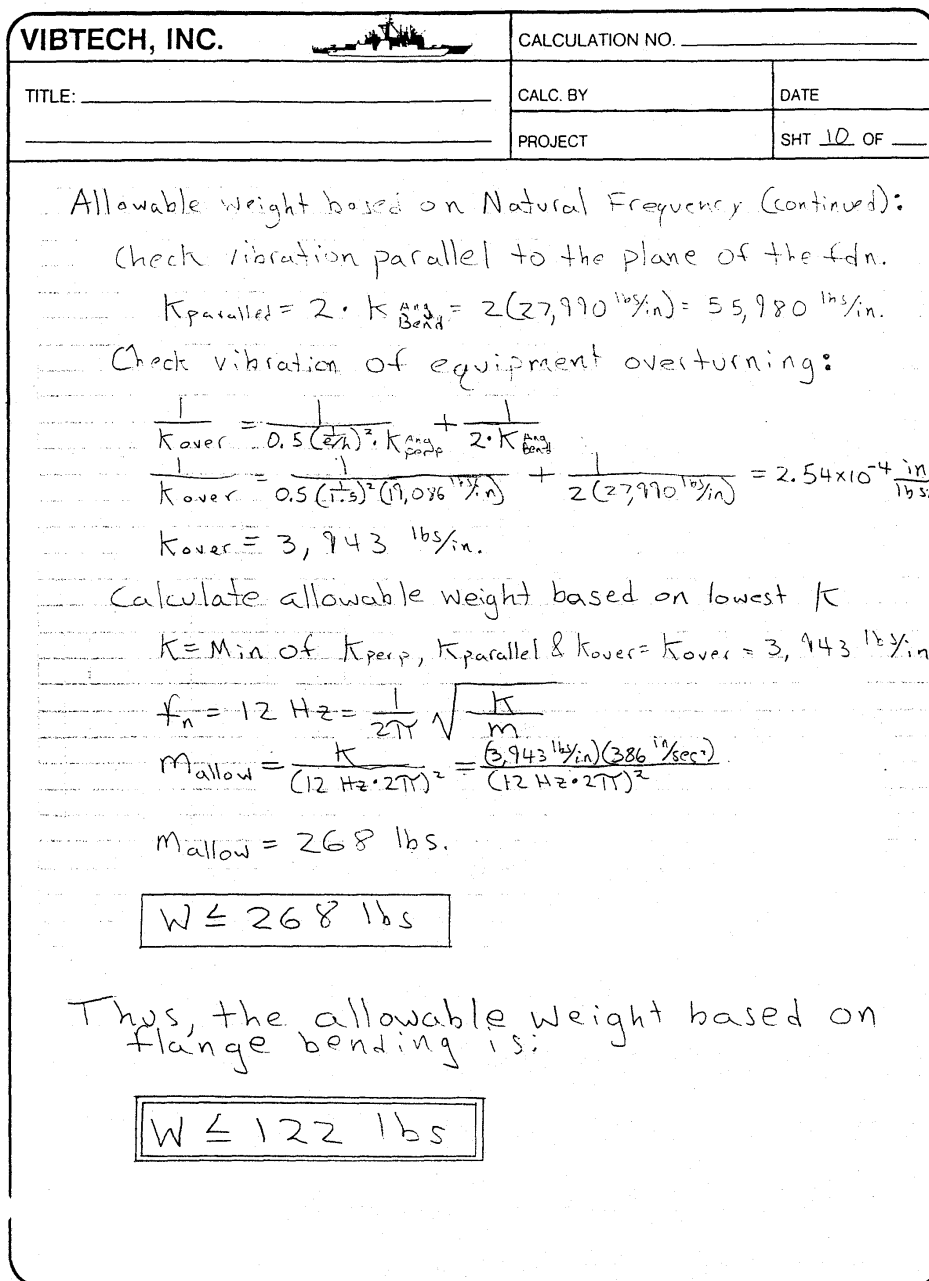 VIBTECH, INC.
CALCULATION NO.
TITLE:
CALC. BY
DATE
PROJECT
SHT 10 OF
Allowable weight based on Natural Frequency (continued):
Check vibration parallel to the plane of the fdn.
Kparallel = 2 · K Ang Bend = 2(27,990 lbs/in) = 55,980 lbs/in.
Check vibration of equipment overturning:
1/Kover = 1/(0.5 (1/(e/h))² · K Ang perp) + 1/(2 · K Ang Bend)
1/Kover = 1/(0.5 (1/1.5)² (19,086 lbs/in)) + 1/(2 (27,990 lbs/in)) = 2.54x10⁻⁴ in/lbs.
Kover = 3,943 lbs/in.
Calculate allowable weight based on lowest K
K = Min of Kperp, Kparallel & Kover = Kover = 3,943 lbs/in
fn = 12 Hz = 1/2π √(K/m)
mallow = K/(12 Hz · 2π)² = (3,943 lbs/in)(386 in/sec²)/(12 Hz · 2π)²
mallow = 268 lbs.
W ≤ 268 lbs
Thus, the allowable weight based on
flange bending is:
W ≤ 122 lbs